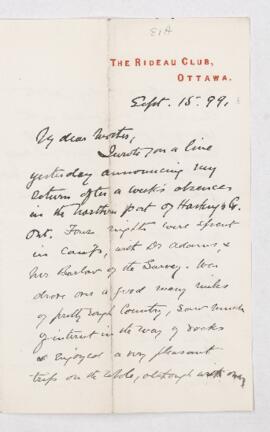 THE RIDEAU CLUB,
OTTAWA.
Sept. 15. 99.
My dear
I wrote you a line
yesterday announcing my
return after a week's absence
in the northern part of Hastings Co.
Ont. Four nights were spent
in camp, with Dr Adams, &
Mr Barlow of the Survey. We
drove over a good many miles
of pretty rough country, saw much
of interest in the way of rocks
& enjoyed a very pleasant
trip on the whole, although